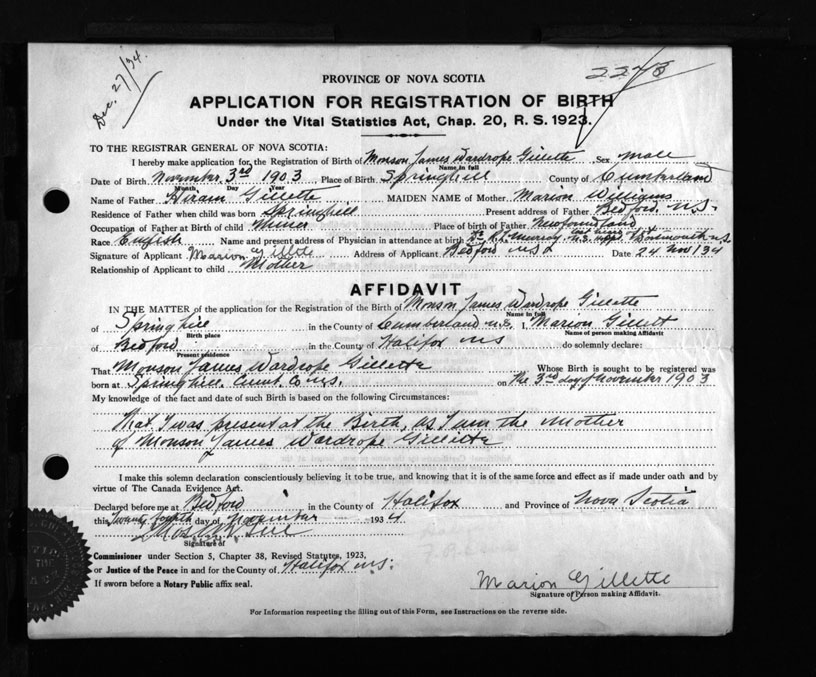 Dec. 27/34.
2278
PROVINCE OF NOVA SCOTIA
APPLICATION FOR REGISTRATION OF BIRTH
Under the Vital Statistics Act, Chap. 20, R. S. 1923.
TO THE REGISTRAR GENERAL OF NOVA SCOTIA:
I hereby make application for the Registration of Birth of Monson James Wardrope Gillette Sex Male
Name in full
Date of Birth November 3rd 1903 Place of Birth Springhill County of Cumberland
Month Day Year
Name of Father Hiram Gillette MAIDEN NAME of Mother Marion Williams
Residence of Father when child was born Springhill Present address of Father Bedford. N.S.
Occupation of Father at Birth of child Miner Place of birth of Father Newfoundland
Race English Name and present address of Physician in attendance at birth Dr. Murray, Dartmouth N.S.
Signature of Applicant Marion Gillette Address of Applicant Bedford N.S. Date 24 Nov/34
Relationship of Applicant to child Mother
AFFIDAVIT
IN THE MATTER of the application for the Registration of the Birth of Monson James Wardrope Gillette
Name in full
of Springhill in the County of Cumberland N.S. I, Marion Gillett
Birth place Name of person making Affidavit
of Bedford in the County of Halifax N.S. do solemnly declare:
Present residence
That Monson James Wardrope Gillette Whose Birth is sought to be registered was
born at Springhill. Cumb. Co N.S. on the 3rd day of November 1903
My knowledge of the fact and date of such Birth is based on the following Circumstances:
That I was present at the Birth, as I am the Mother
of Monson James Wardrope Gillette
I make this solemn declaration conscientiously believing it to be true, and knowing that it is of the same force and effect as if made under oath and by
virtue of The Canada Evidence Act.
Declared before me at Bedford in the County of Halifax and Province of Nova Scotia
this Twenty fourth day of November 1934
Signature of
Commissioner under Section 5, Chapter 38, Revised Statutes, 1923,
or Justice of the Peace in and for the County of Halifax N.S.
If sworn before a Notary Public affix seal.
Marion Gillette
Signature of Person making Affidavit.
For Information respecting the filling out of this Form, see Instructions on the reverse side.